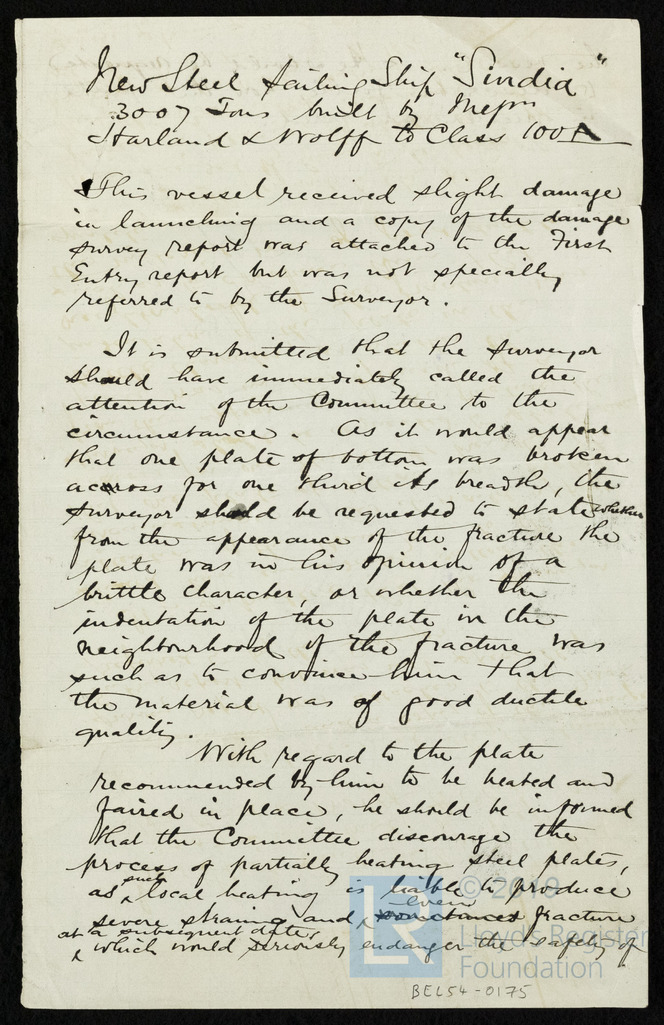 New Steel Sailing Ship "Sindia"
3007 Tons built by Messrs
Harland & Wolff to Class 100A
This vessel received slight damage
in launching and a copy of the damage
survey report was attached to the First
Entry report but was not specially
referred to by the Surveyor.
It is submitted that the surveyor
should have immediately called the
attention of the Committee to the
circumstance. As it would appear
that one plate of bottom was broken
across for one third its breadth, the
surveyor should be requested to state whether
from the appearance of the fracture the
plate was in his opinion of a
brittle character, or whether the
indentation of the plate in the
neighbourhood of the fracture was
such as to convince him that
the material was of good ductile
quality.
With regard to the plate
recommended by him to be heated and
faired in place, he should be informed
that the Committee discourage the
process of partially heating steel plates,
as such local heating is liable to produce
severe strains and even sometimes fracture
at a subsequent date,
which would seriously endanger the safety of
© 2019
Lloyd's Register
Foundation
LR
BEL54-0175